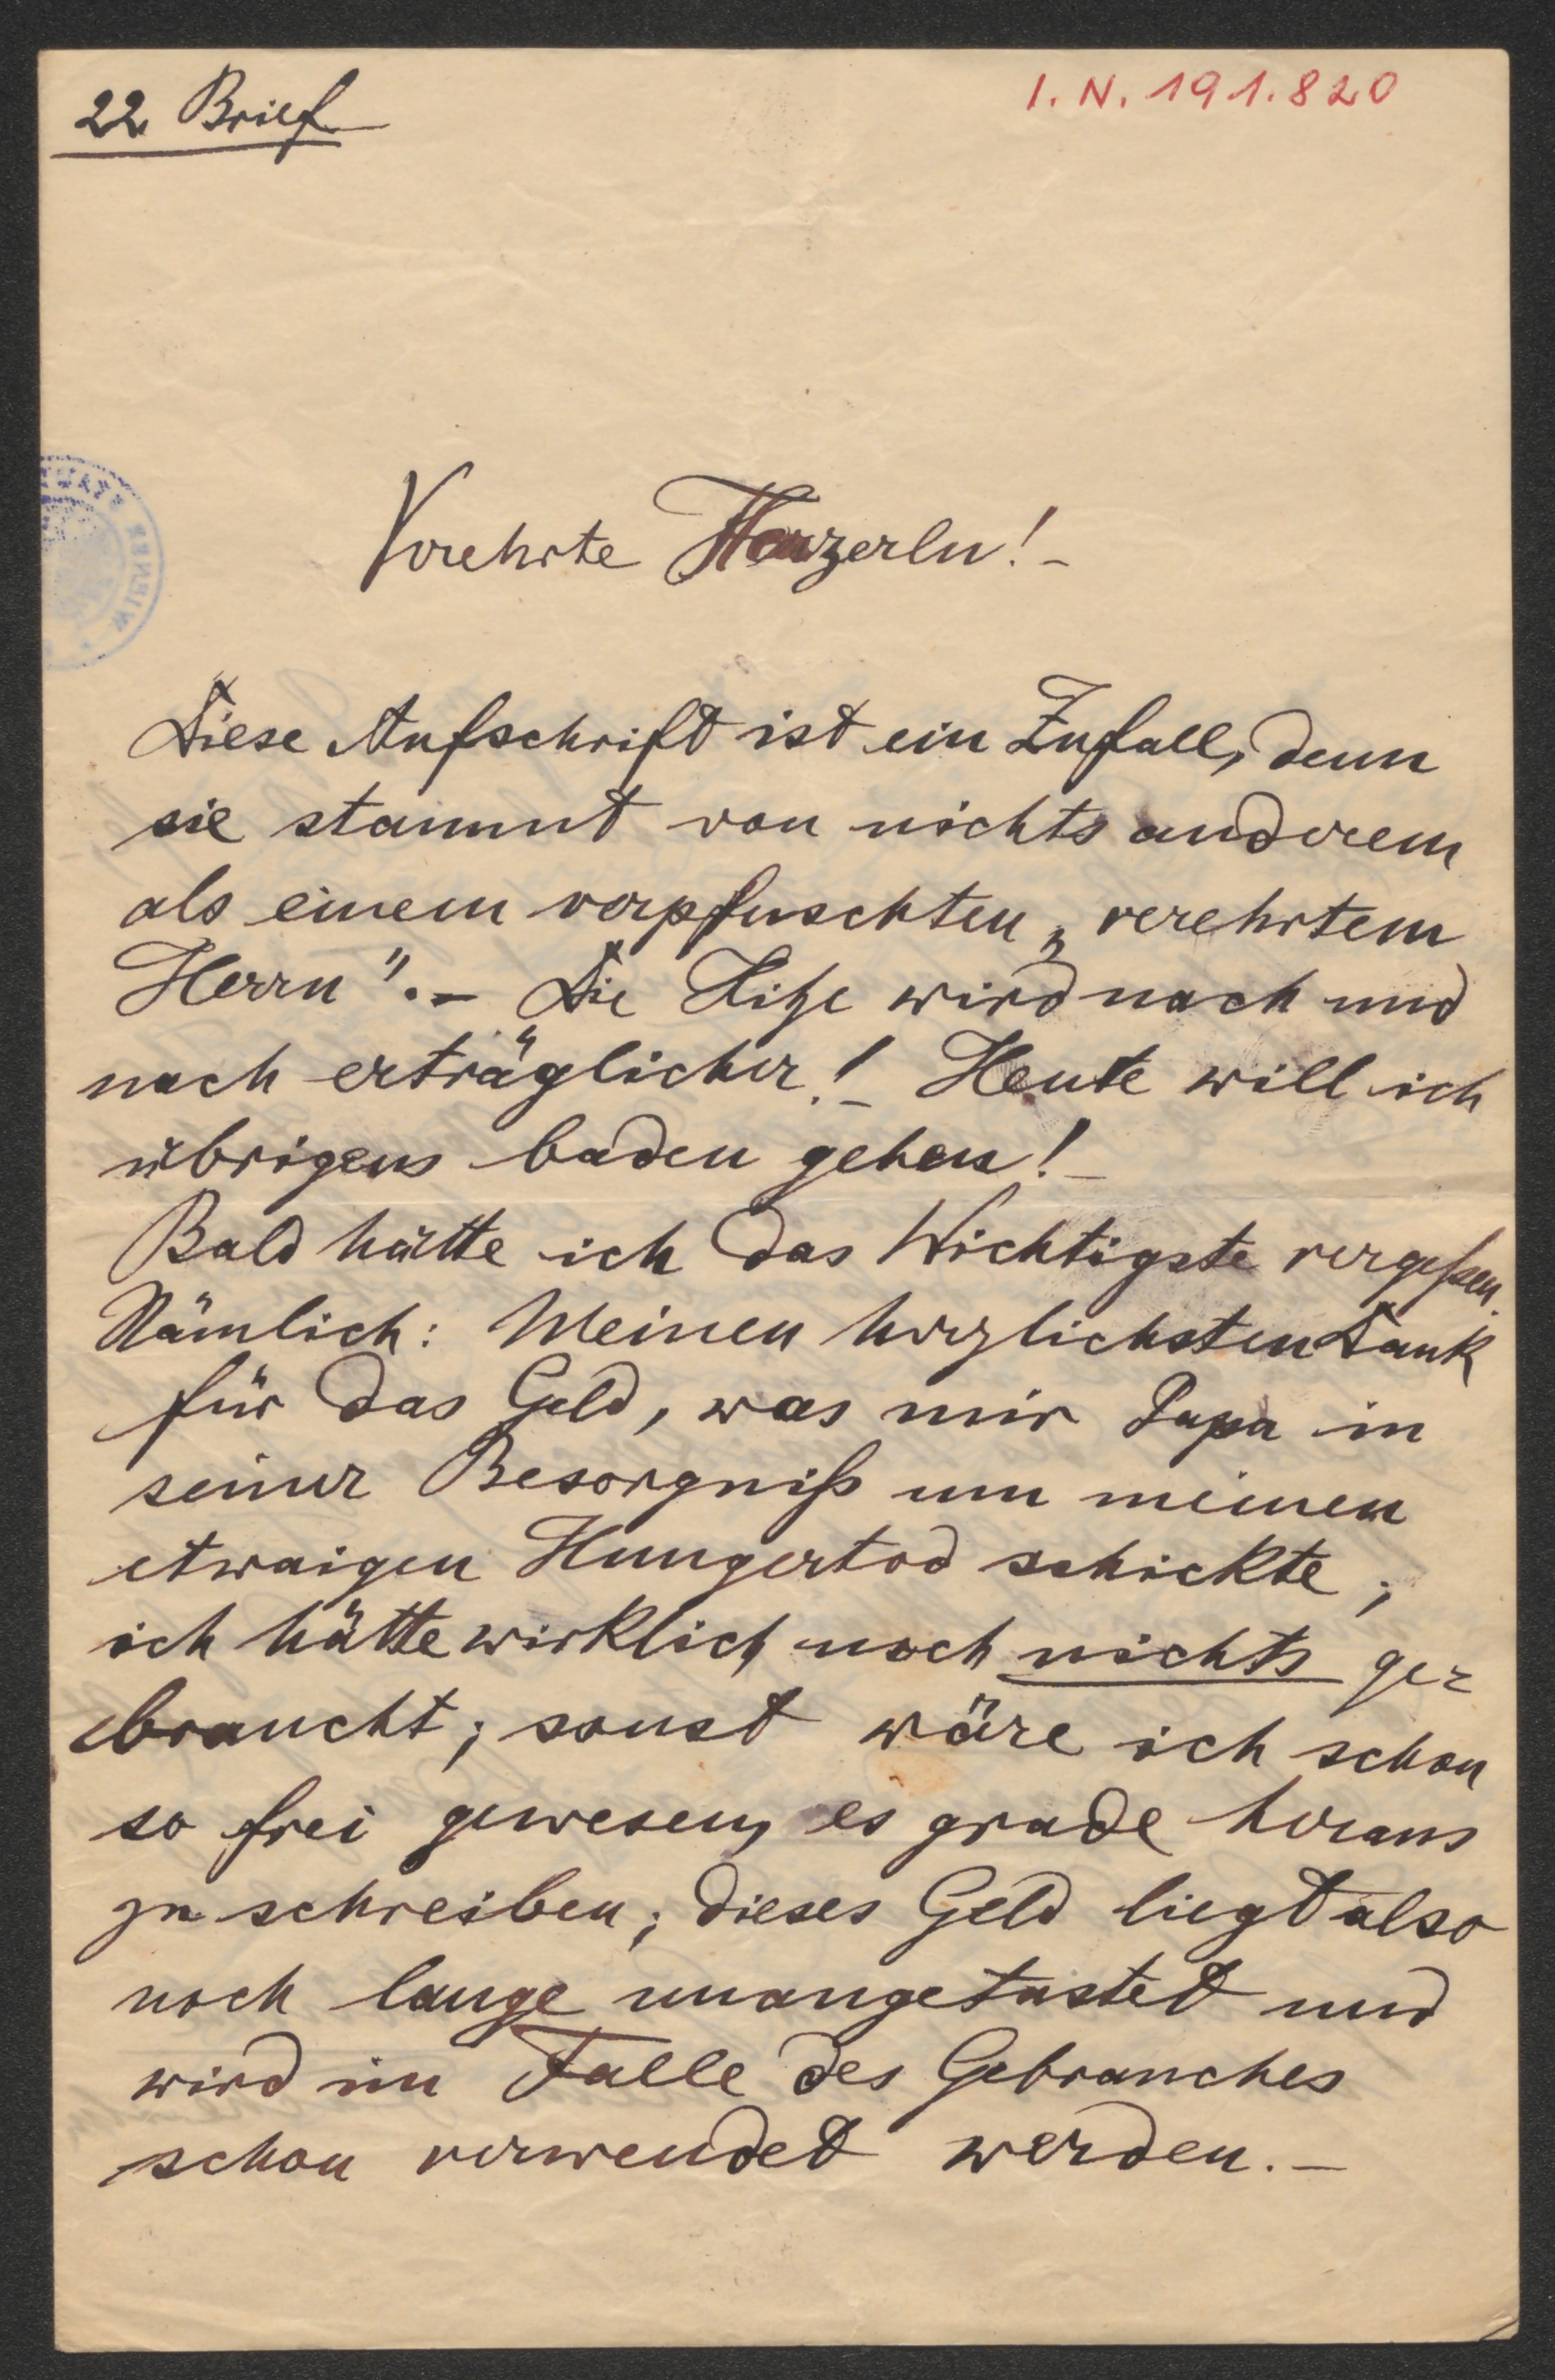 22 Brief
I. N. 191.820
Verehrte Herzerln! –
Diese Aufschrift ist ein Zufall, denn
sie stammt von nichts anderem
als einem verpfuschten „verehrtem
Herrn". – Die Hitze wird nach und
nach erträglicher! – Heute will ich
übrigens baden gehen! –
Bald hätte ich das Wichtigste vergeßen.
Nämlich: Meinen herzlichsten Dank
für das Geld, was mir Papa in
seiner Besorgniß um meinen
etwaigen Hungertod schickte;
ich hätte wirklich noch nichts ge=
braucht; sonst wäre ich schon
so frei gewesen, es grade heraus
zu schreiben; dieses Geld liegt also
noch lange unangetastet und
wird im Falle des Gebrauches
schon verwendet werden. –
WIENER